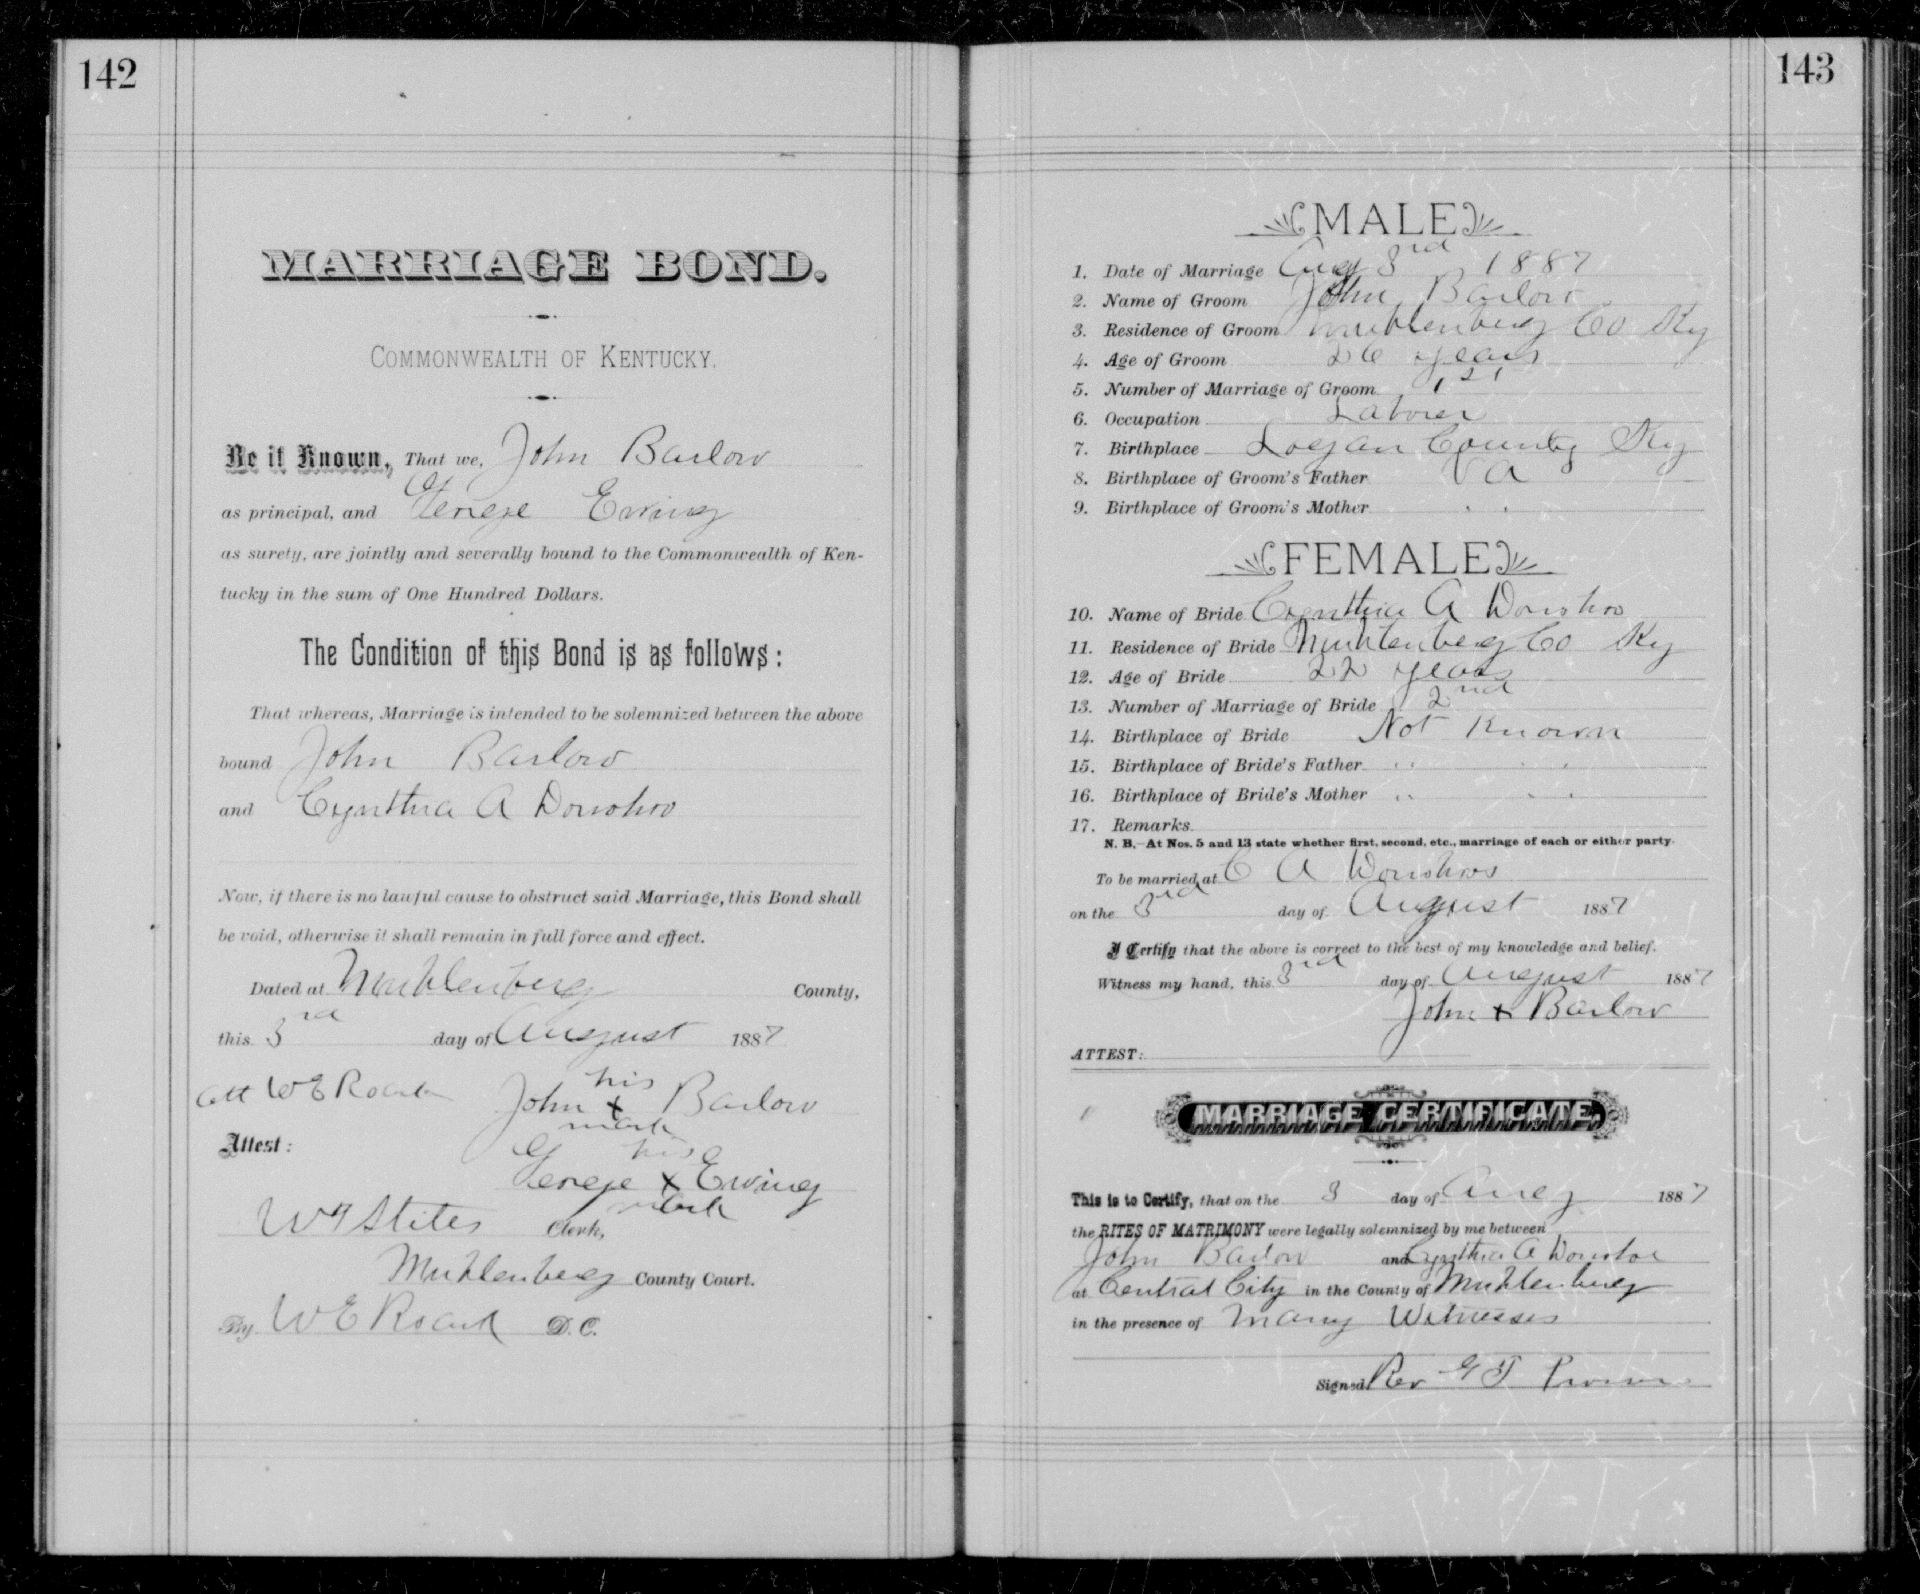 142
MARRIAGE BOND.
COMMONWEALTH OF KENTUCKY.
Be it Known, That we, John Barlow
as principal, and George Ewing
as surety, are jointly and severally bound to the Commonwealth of Ken-
tucky in the sum of One Hundred Dollars.
The Condition of this Bond is as follows:
That whereas, Marriage is intended to be solemnized between the above
bound John Barlow
and Cynthia A Donohoo
Now, if there is no lawful cause to obstruct said Marriage, this Bond shall
be void, otherwise it shall remain in full force and effect.
Dated at Muhlenberg County,
this 3rd day of August 1887
Att W E Roark
his
John x Barlow
mark
Attest:
his
George x Ewing
mark
Stites Clerk,
Muhlenberg County Court.
By W E Roark D. C.
143
MALE
1. Date of Marriage Aug 3rd 1887
2. Name of Groom John Barlow
3. Residence of Groom Muhlenberg Co Ky
4. Age of Groom 26 years
5. Number of Marriage of Groom 1st
6. Occupation Laborer
7. Birthplace Logan County Ky
8. Birthplace of Groom's Father VA
9. Birthplace of Groom's Mother " "
FEMALE
10. Name of Bride Cynthia A Donohoo
11. Residence of Bride Muhlenberg Co Ky
12. Age of Bride 22 years
13. Number of Marriage of Bride 2nd
14. Birthplace of Bride Not Known
15. Birthplace of Bride's Father " "
16. Birthplace of Bride's Mother " "
17. Remarks
N. B.—At Nos. 5 and 13 state whether first, second, etc., marriage of each or either party.
To be married at C A Donohoos
on the 3rd day of August 1887
I Certify that the above is correct to the best of my knowledge and belief.
Witness my hand, this 3rd day of August 1887
John x Barlow
ATTEST:
MARRIAGE CERTIFICATE.
This is to Certify, that on the 3 day of Aug 1887
the RITES OF MATRIMONY were legally solemnized by me between
John Barlow and Cynthia A Donohoe
at Central City in the County of Muhlenberg
in the presence of Many Witnesses
Signed Rev G T